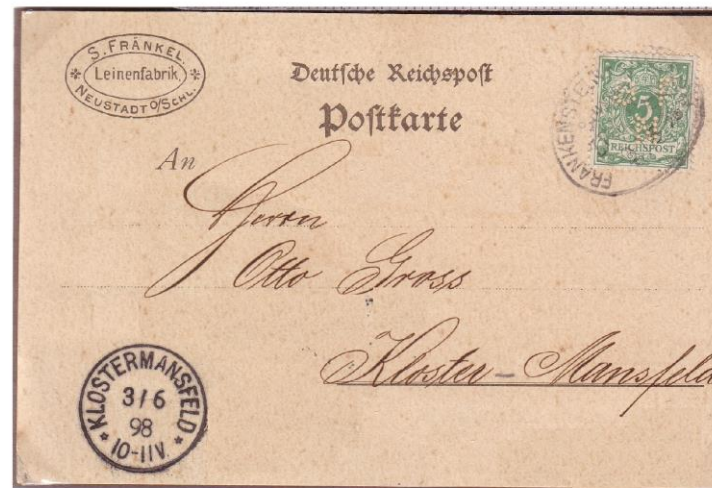 S. FRÄNKEL.
Leinenfabrik,
NEUSTADT O/SCHL.
Deutsche Reichspost
Postkarte
An
5
REICHSPOST
FRANKENSTEIN
Herrn
Otto Gross
Kloster-Mansfeld
KLOSTERMANSFELD
3/6
98
10-11V.